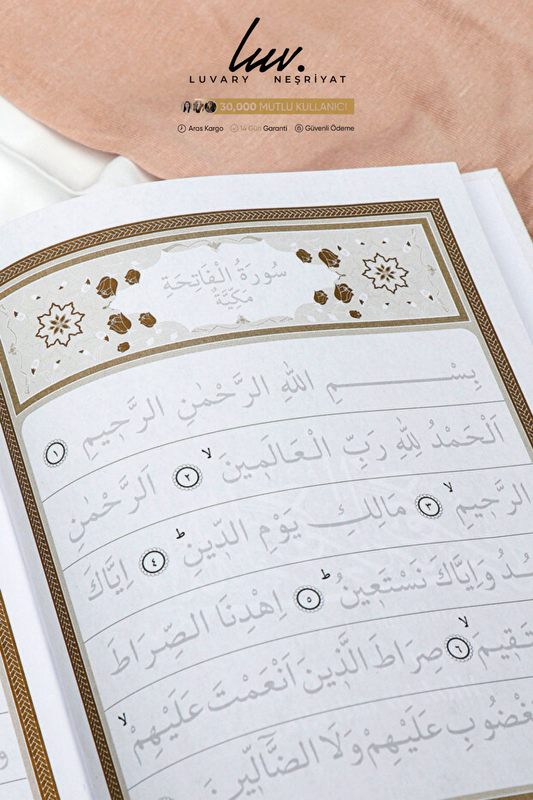 luv.
LUVARY NEŞRİYAT
30,000 MUTLU KULLANICI
Aras Kargo 14 Gün Garanti Güvenli Ödeme
سُورَةُ الْفَاتِحَةِ
مَكِّيَّةٌ
بِسْمِ اللّٰهِ الرَّحْمٰنِ الرَّح۪يمِ ١
اَلْحَمْدُ لِلّٰهِ رَبِّ الْعَالَم۪ينَ لا ٢ اَلرَّحْمٰنِ
الرَّح۪يمِ لا ٣ مَالِكِ يَوْمِ الدّ۪ينِ ط ٤ اِيَّاكَ
ـدُ وَاِيَّاكَ نَسْتَع۪ينُ ط ٥ اِهْدِنَا الصِّرَاطَ
ـتَق۪يمَ لا ٦ صِرَاطَ الَّذ۪ينَ اَنْعَمْتَ عَلَيْهِمْ لا
ـغْضُوبِ عَلَيْهِمْ وَلَا الضَّٓالّ۪ينَ